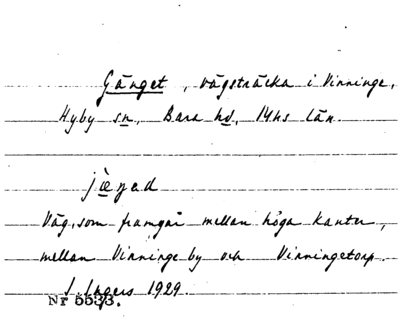 Gänget, vägsträcka i Vinninge,
Hyby sn, Bara hd, M-hs län.
jèŋed
Väg, som framgår mellan höga kanter,
mellan Vinninge by och Vinningetorp.
I. Ingers 1929.
Nr 5533.